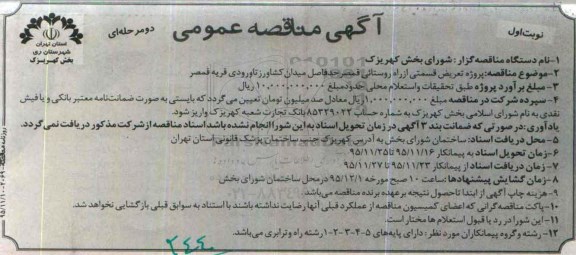 نوبت اول
آگهی مناقصه عمومی
دومرحله‌ای
استان تهران
شهرستان ری
بخش کهریزک
۱-نام دستگاه مناقصه گزار: شورای بخش کهریزک
۲-موضوع مناقصه: پروژه تعریض قسمتی از راه روستائی قمصر حدفاصل میدان کشاورز تاورودی قریه قمصر
۳-مبلغ برآورد پروژه طبق تحقیقات واستعلام محلی حدودمبلغ ۱۰,۰۰۰,۰۰۰,۰۰۰ ریال
۴-سپرده شرکت در مناقصه مبلغ ۱,۰۰۰,۰۰۰,۰۰۰ ریال معادل صد میلیون تومان تعیین می گردد که بایستی به صورت ضمانت‌نامه معتبر بانکی و یا فیش
نقدی به نام شورای اسلامی بخش کهریزک به شماره حساب ۸۵۳۲۹۰۲۳ بانک تجارت شعبه کهریزک واریز شود.
یادآوری: در صورتی که ضمانت بند ۴ آگهی در زمان تحویل اسناد به این شورا انجام نشده باشد اسناد مناقصه از شرکت مذکور دریافت نمی گردد.
۵-محل دریافت اسناد: ساختمان شورای بخش به آدرس کهریزک جنب ساختمان پزشک قانونی استان تهران
۶-زمان تحویل اسناد به پیمانکار ۹۵/۱۱/۱۶ تا ۹۵/۱۱/۲۵
۷-زمان دریافت اسناد از پیمانکار ۹۵/۱۱/۲۳ تا ۹۵/۱۱/۲۷
۸-زمان گشایش پیشنهادها: ساعت ۱۰ صبح مورخه ۹۵/۱۲/۱ در محل ساختمان شورای بخش
۹-هزینه چاپ آگهی از ابتدا تاحصول نتیجه برعهده برنده مناقصه می‌باشد.
۱۰-پاکت مناقصه گرانی که اعضای کمیسیون مناقصه از عملکرد قبلی آنها رضایت نداشته باشند با استناد به سوابق قبلی بازگشایی نخواهد شد.
۱۱-این شورا در رد یا قبول استعلام ها مختار است.
۱۲-رشته و گروه پیمانکاران مورد نظر: دارای پایه‌های ۵-۴-۳-۲-۱ رشته راه وترابری می‌باشد.
۲۴۴۰